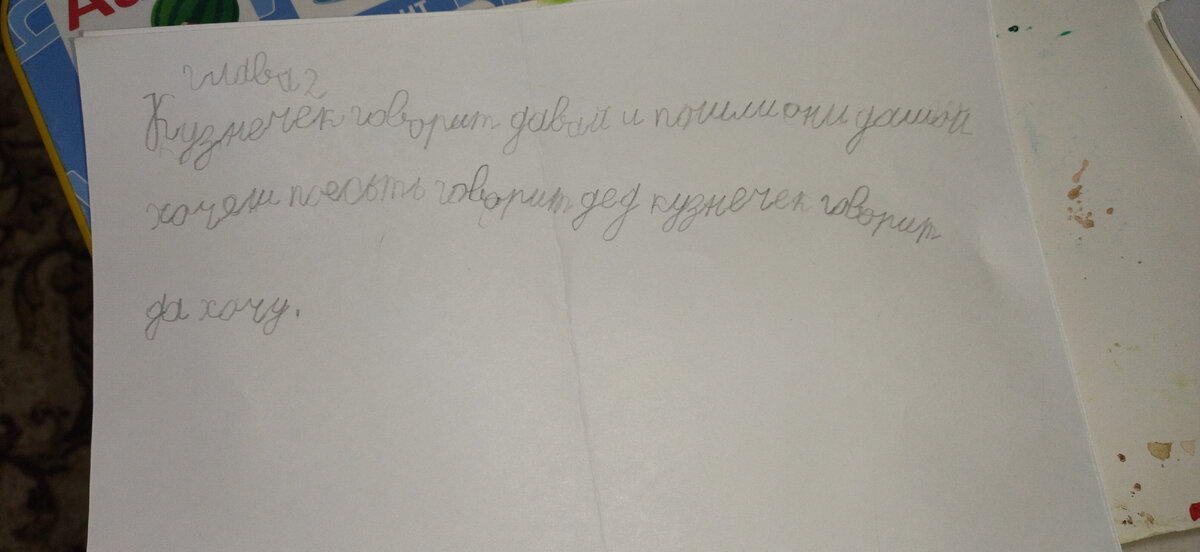 глава 2
Кузнечек говорит давай и пошли они дамой
хочеш поесыть говорит дед кузнечек говорит
да хочу.